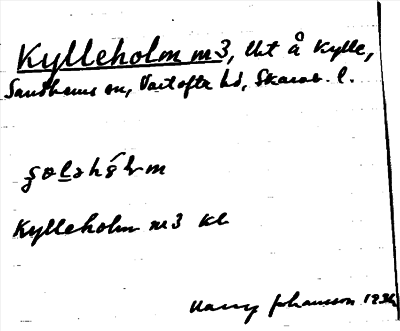 Kylleholm m3, lht å Kylle,
Sandhems sn, Vartofta hd, Skarab. l.
Kylleholm m3 kl
Harry Johansson 193